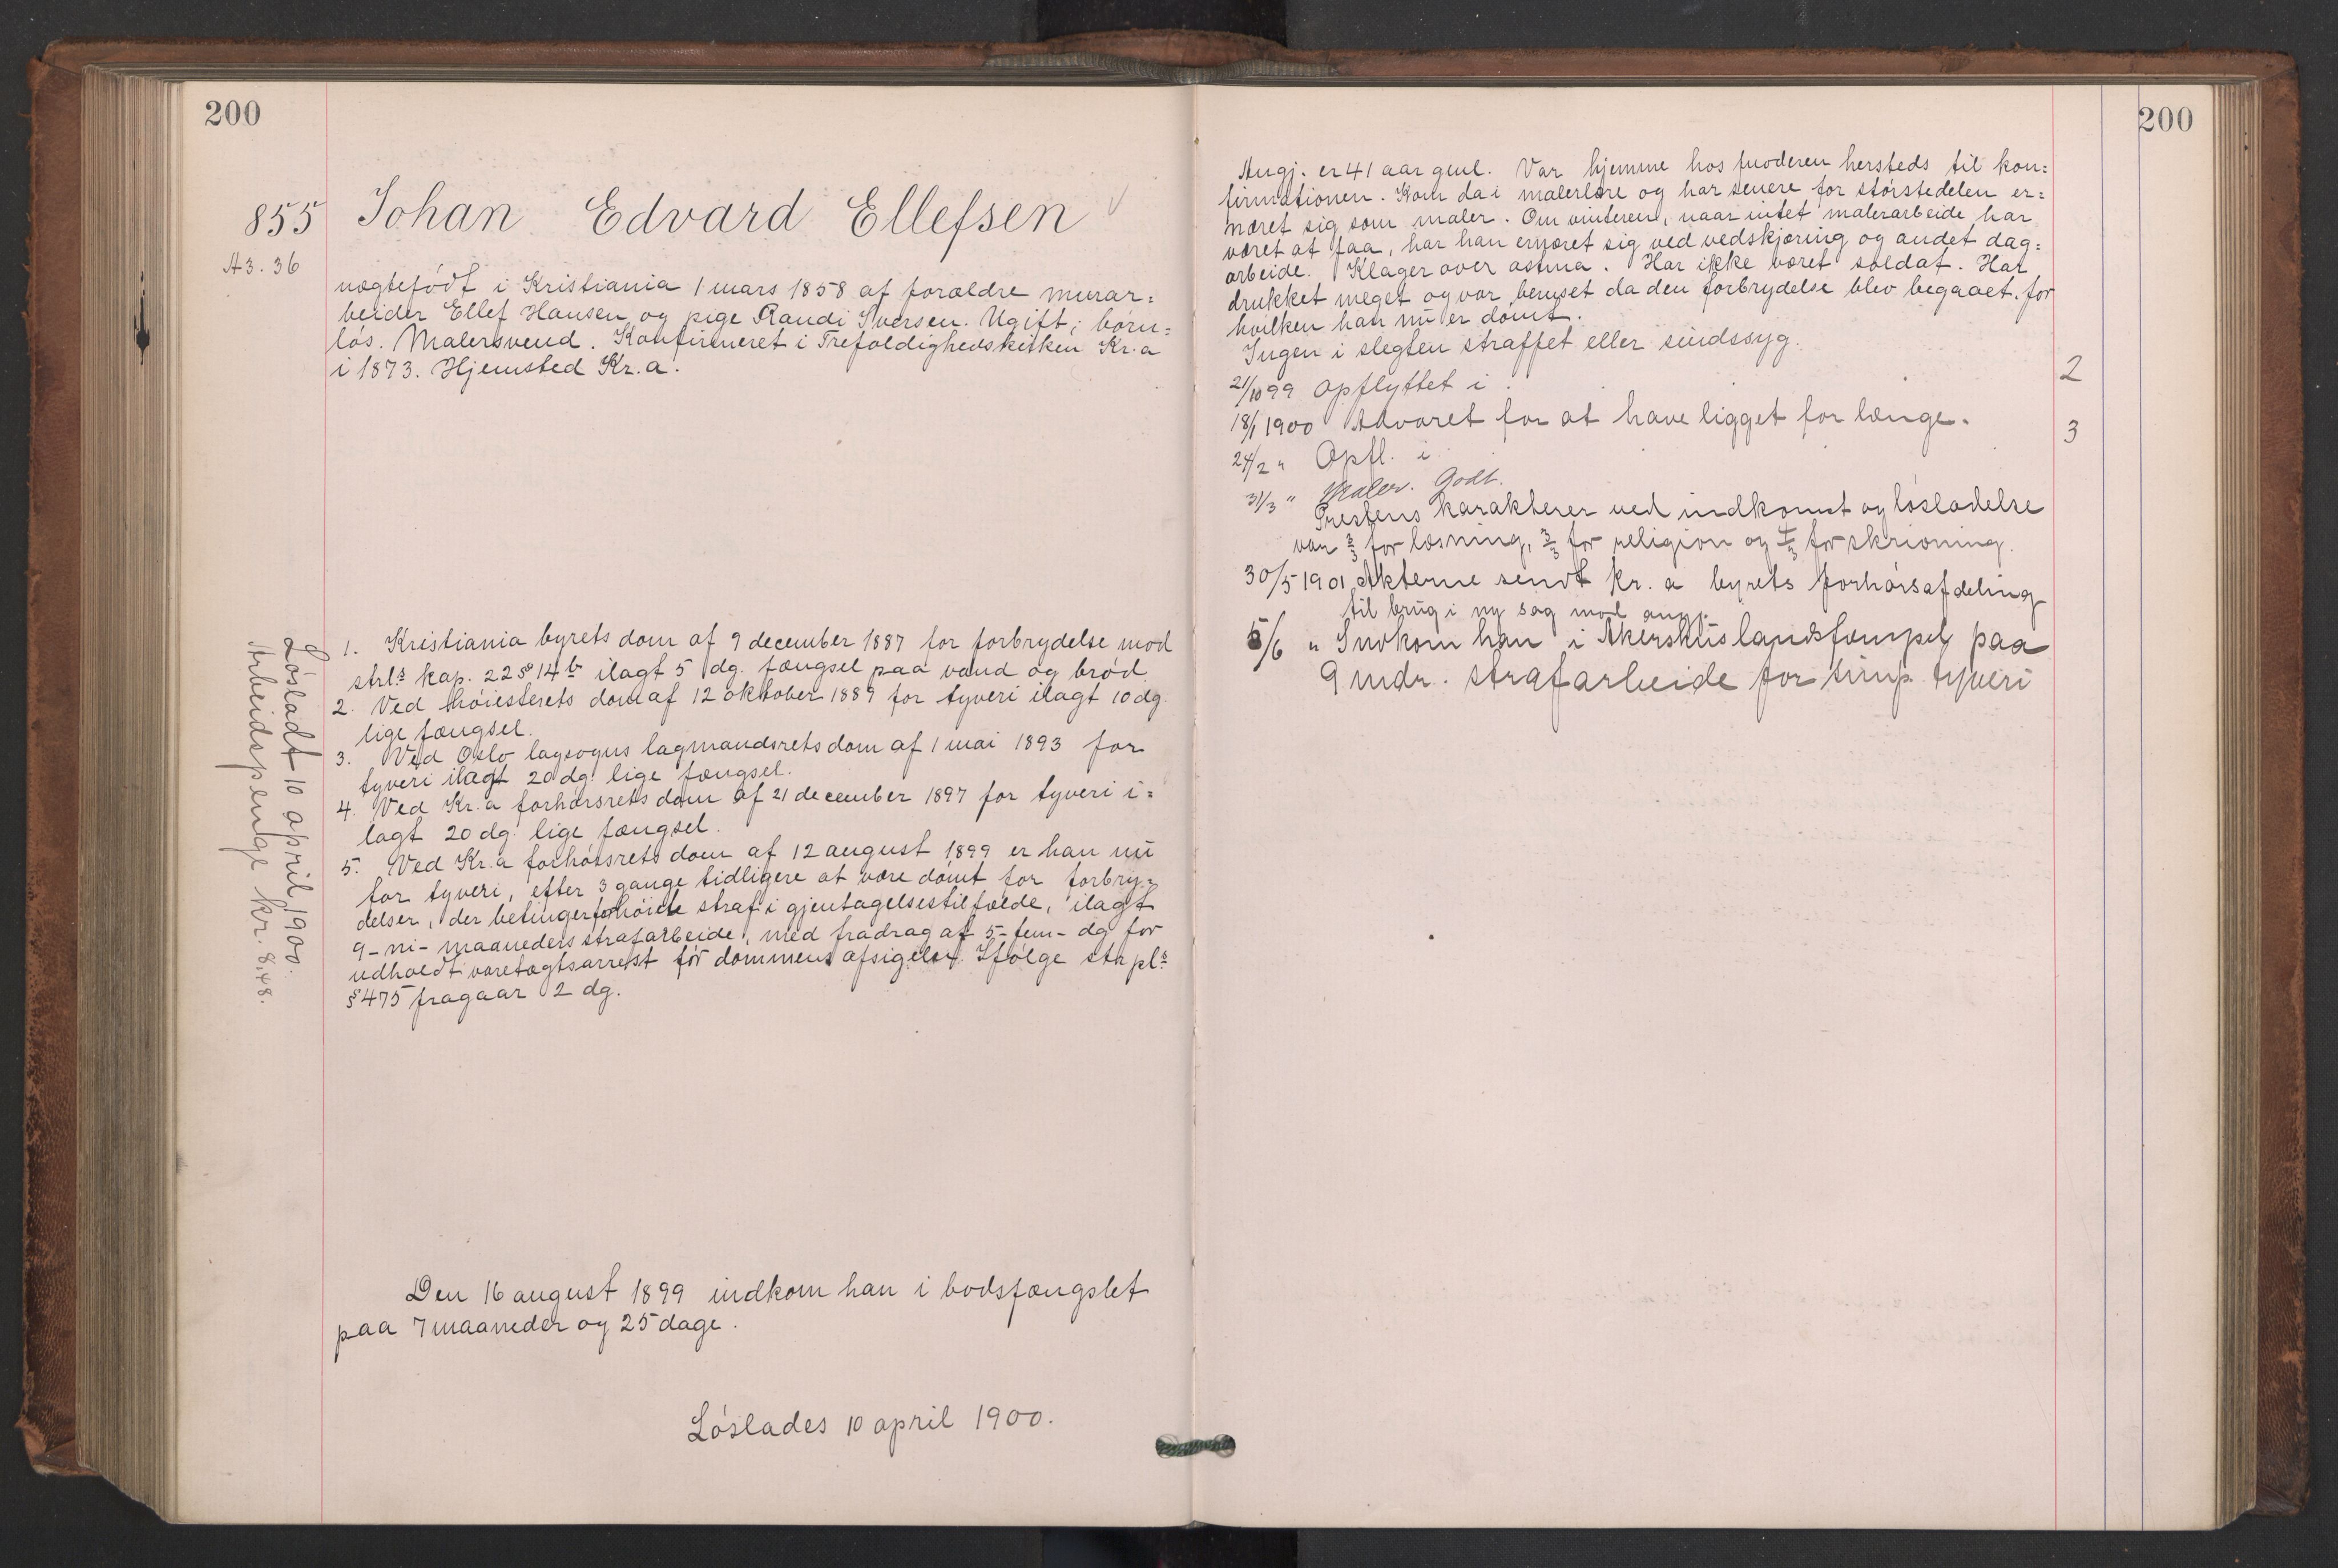 200
855
A3. 36
Johan Edvard Ellefsen
uegtefödt i Kristiania 1 mars 1858 af forældre murar=
beider Ellef Hansen og pige Randi Iversen. Ugift; börn=
lös. Malersvend. Konfirmeret i Trefoldighedskirken Kr.a
i 1873. Hjemsted Kr.a.
1. Kristiania byrets dom af 9 december 1887 for forbrydelse mod
strls kap. 22 § 14 b ilagt 5 dg. fængsel paa vand og bröd.
2. Ved höiesterets dom af 12 oktober 1889 for tyveri ilagt 10 dg.
lige fængsel.
3. Ved Oslo lagsogns lagmandsrets dom af 1 mai 1893 for
tyveri ilagt 20 dg. lige fængsel.
4. Ved Kr.a forhörsrets dom af 21 december 1897 for tyveri i=
lagt 20 dg. lige fængsel.
5. Ved Kr.a forhörsrets dom af 12 august 1899 er han nu
for tyveri, efter 3 gange tidligere at være dömt for forbry=
delser, der betinger forhöiet straf i gjentagelsestilfælde, ilagt
9 - ni - maaneders strafarbeide, med fradrag af 5 - fem - dg for
udholdt varetægtsarrest för dommens afsigelse. Ifölge strpls
§ 475 fragaar 2 dg.
Lösladt 10 april 1900.
Arbeidspenge kr. 8,48.
Den 16 august 1899 indkom han i bodsfængslet
paa 7 maaneder og 25 dage.
Löslades 10 april 1900.
200
Angj. er 41 aar gml. Var hjemme hos moderen hersteds til kon=
firmationen. Kom da i malerlære og har senere for störstedelen er=
næret sig som maler. Om vinteren, naar intet malerarbeide har
været at faa, har han ernæret sig ved vedskjæring og andet dag=
arbeide. Klager over astma. Har ikke været soldat. Har
drukket meget og var beruset da den forbrydelse blev begaaet, for
hvilken han nu er dömt.
Ingen i slegten straffet eller sindssyg.
21/10 99 Opflyttet i 2
18/1 1900 Advaret for at have ligget for længe.
24/2 " Opfl. i 3
31/3 " Maler. Godt.
Prestens karakterer ved indkomst og lösladelse
var 3/3 for læsning, 3/3 for religion og 4/3 for skrivning.
30/5 1901 Akterne sendt Kr.a byrets forhörsafdeling
til brug i ny sag mod angj.
5/6 " Indkom han i Akershus landsfængsel paa
9 mdr. strafarbeide for simp. tyveri